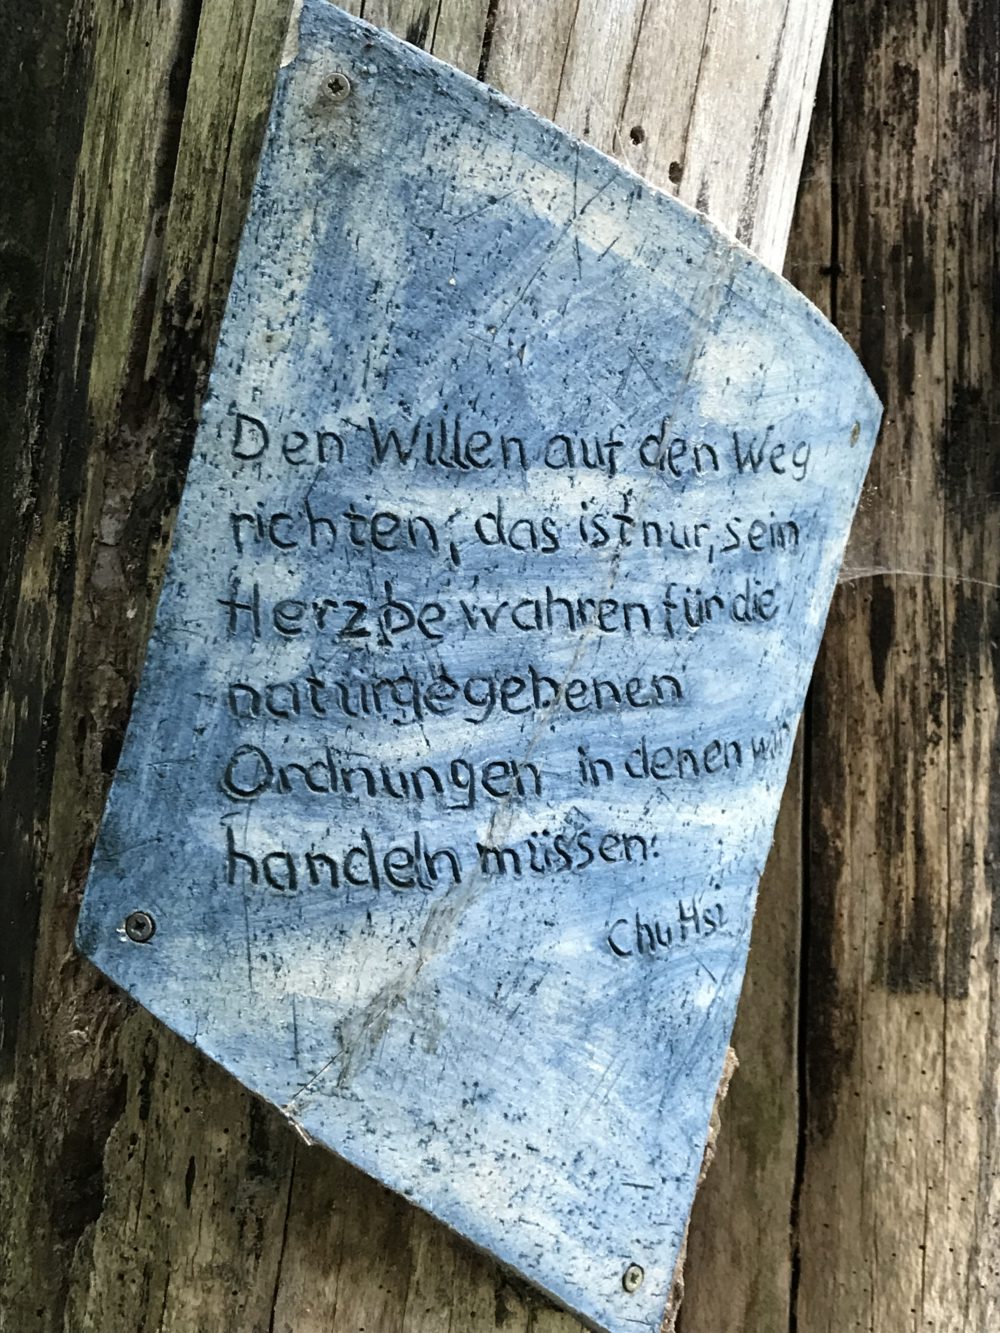 Den Willen auf den Weg
richten, das ist nur, sein
Herz bewahren für die
naturgegebenen
Ordnungen in denen wir
handeln müssen.
Chu Hsi